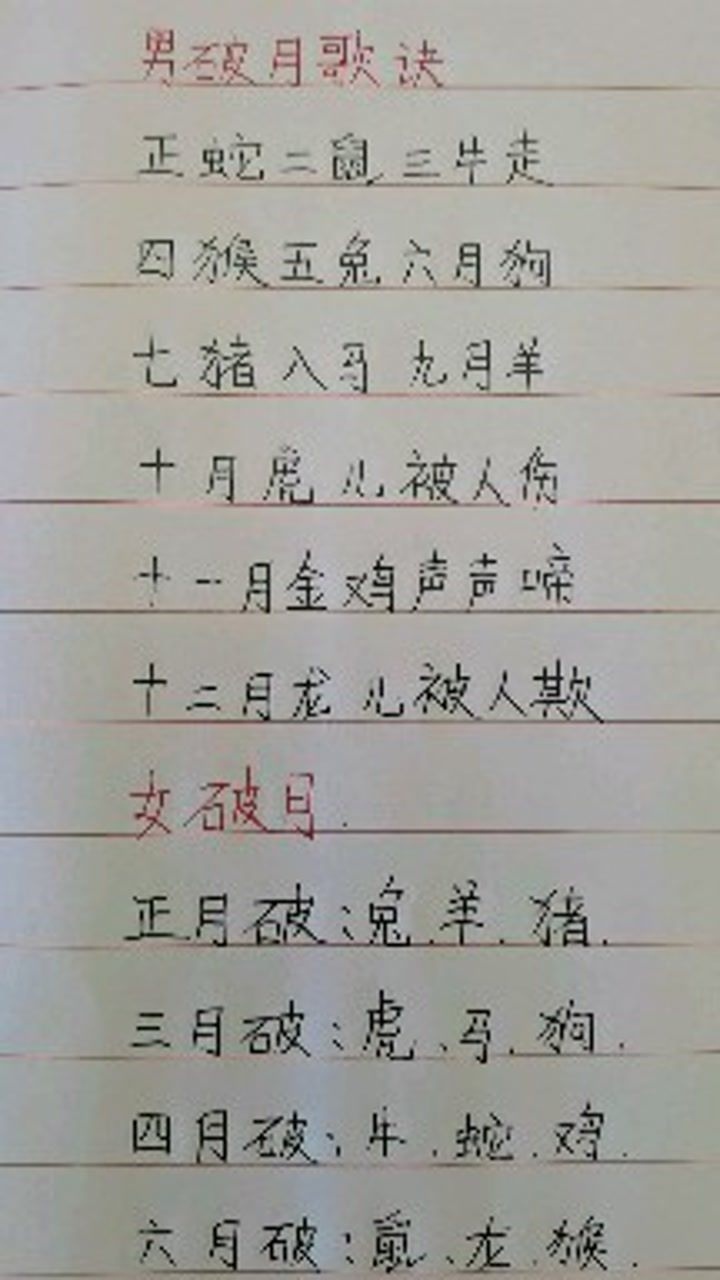 男破月歌诀
正蛇二鼠三牛走
四猴五兔六月狗
七猪八马九月羊
十月虎儿被人伤
十一月金鸡声声啼
十二月龙儿被人欺
女破日.
正月破:兔.羊.猪.
三月破:虎、马.狗.
四月破:牛.蛇.鸡.
六月破:鼠、龙.猴.